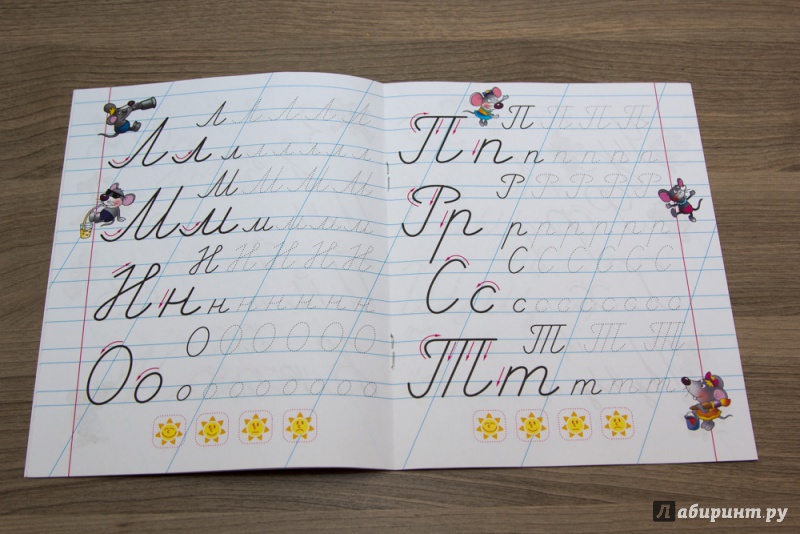 Л Л Л Л Л
Л л л л л л л л л
М М М М М
М м м м м м
Н Н Н Н Н Н
Н н н н н н н н н
О О О О О О
О о о о о о о о о о
П П П П
П п п п п п п
Р Р Р Р Р Р
Р р р р р р р р
С С С С С С
С с с с с с с с с с
Т Т Т
Т т т т т
Лабиринт.ру